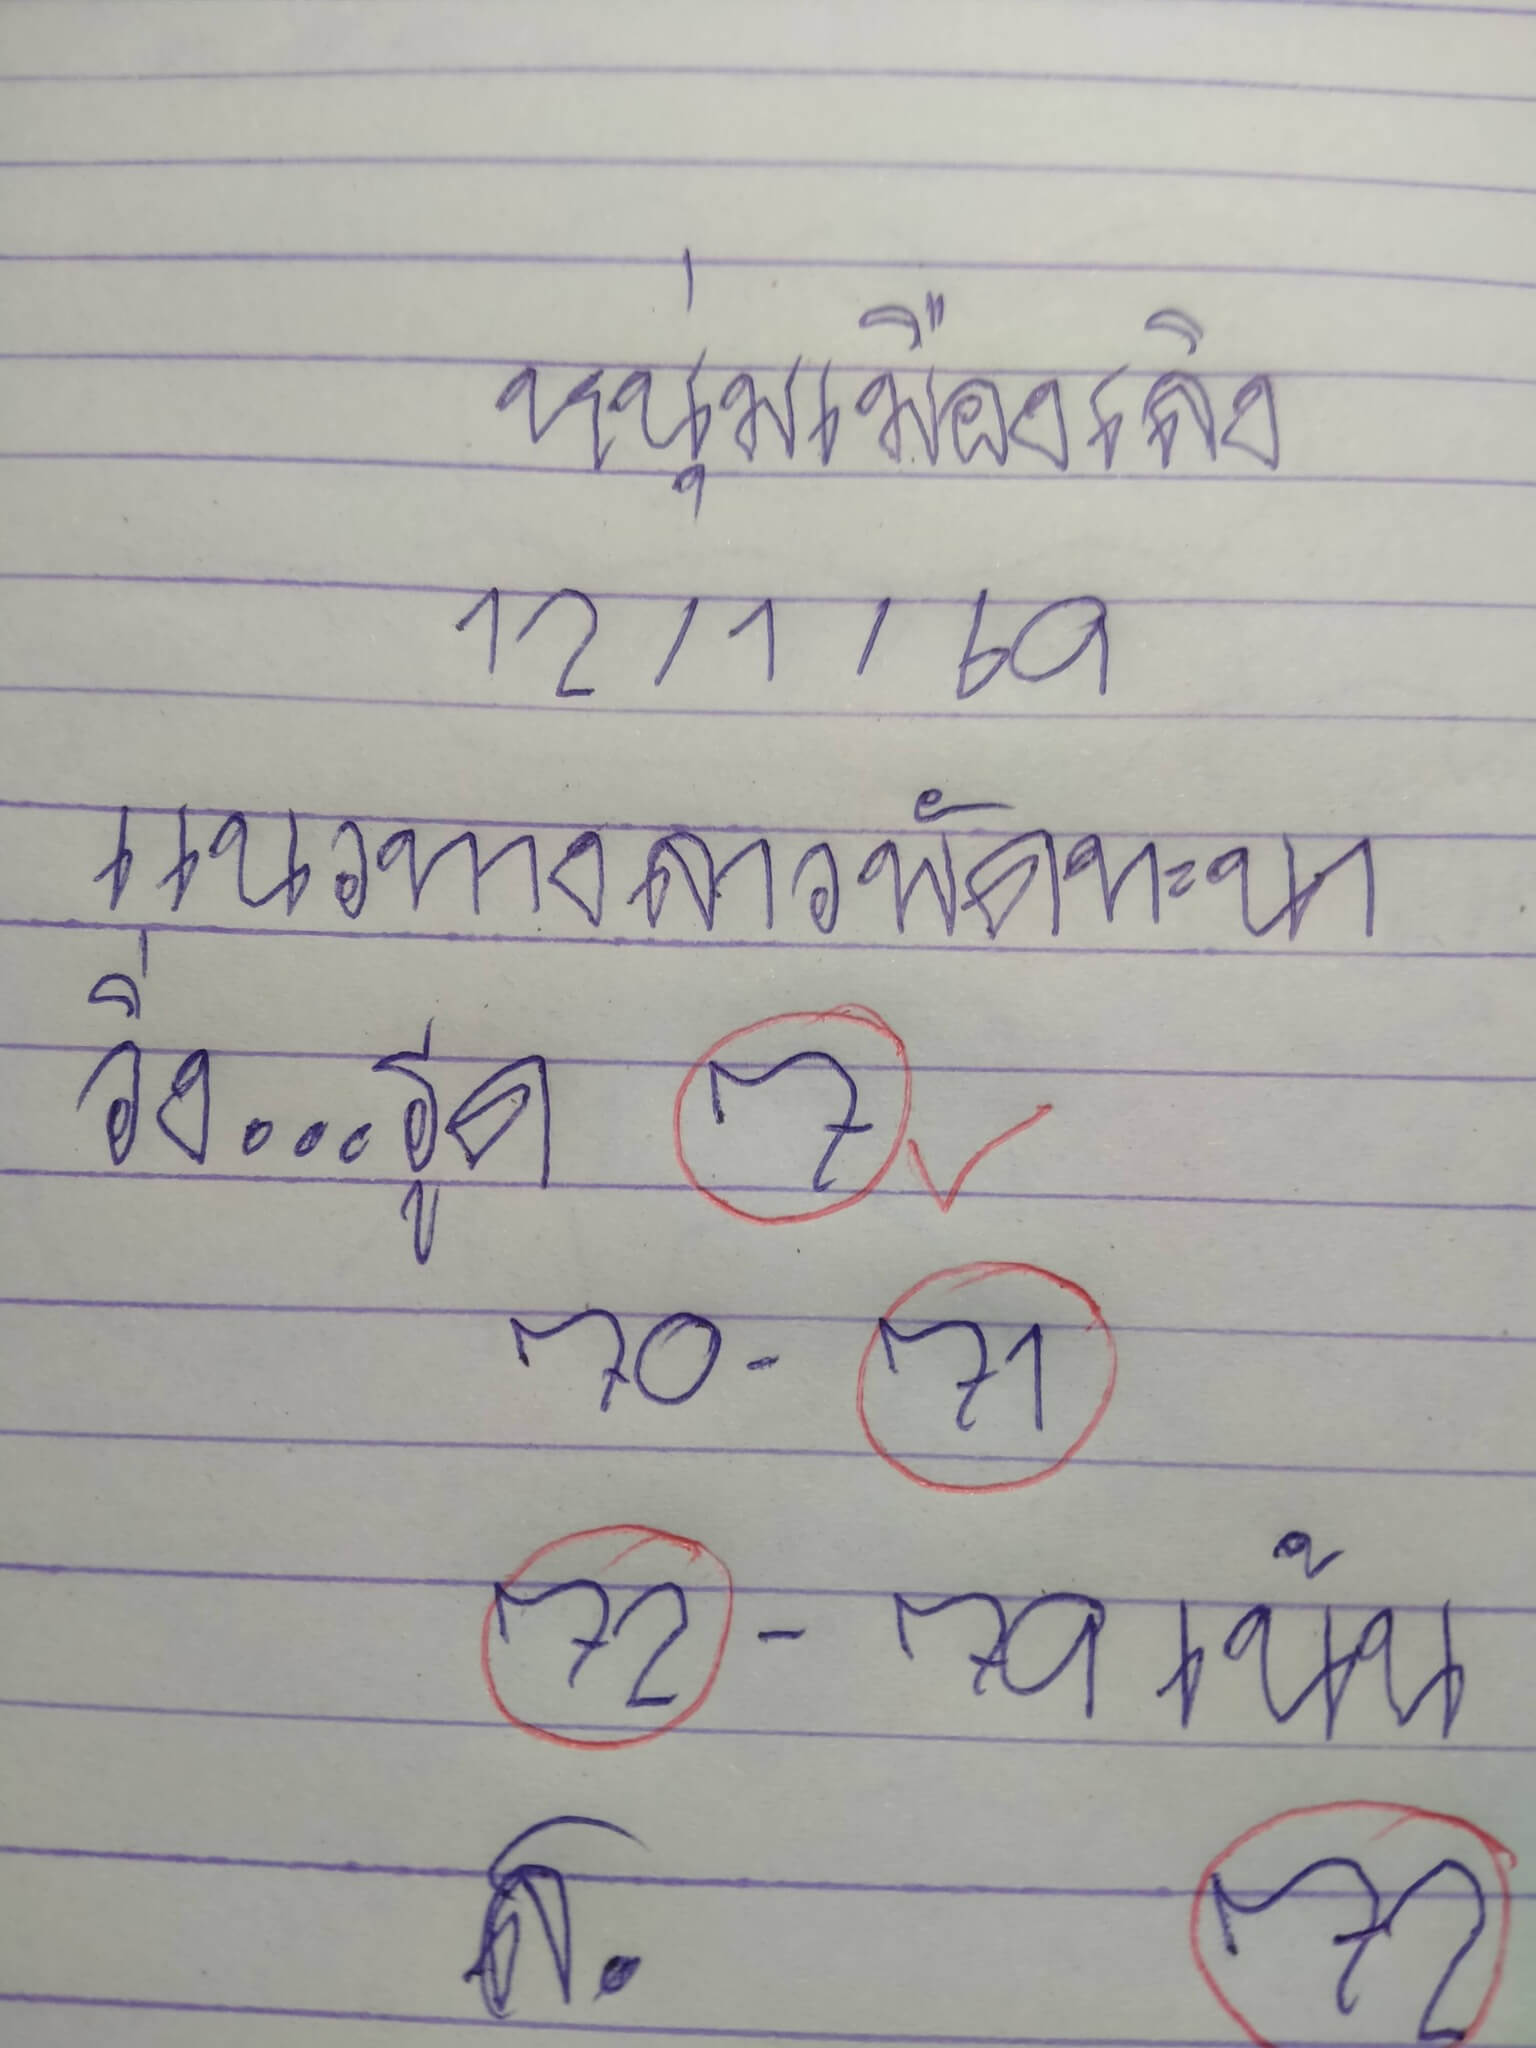 หนุ่มเมืองเถิง
12/1/69
แนวทางลาวพัดทะนา
วิ่ง...รูด 7
70-71
72-79 เน้น
72